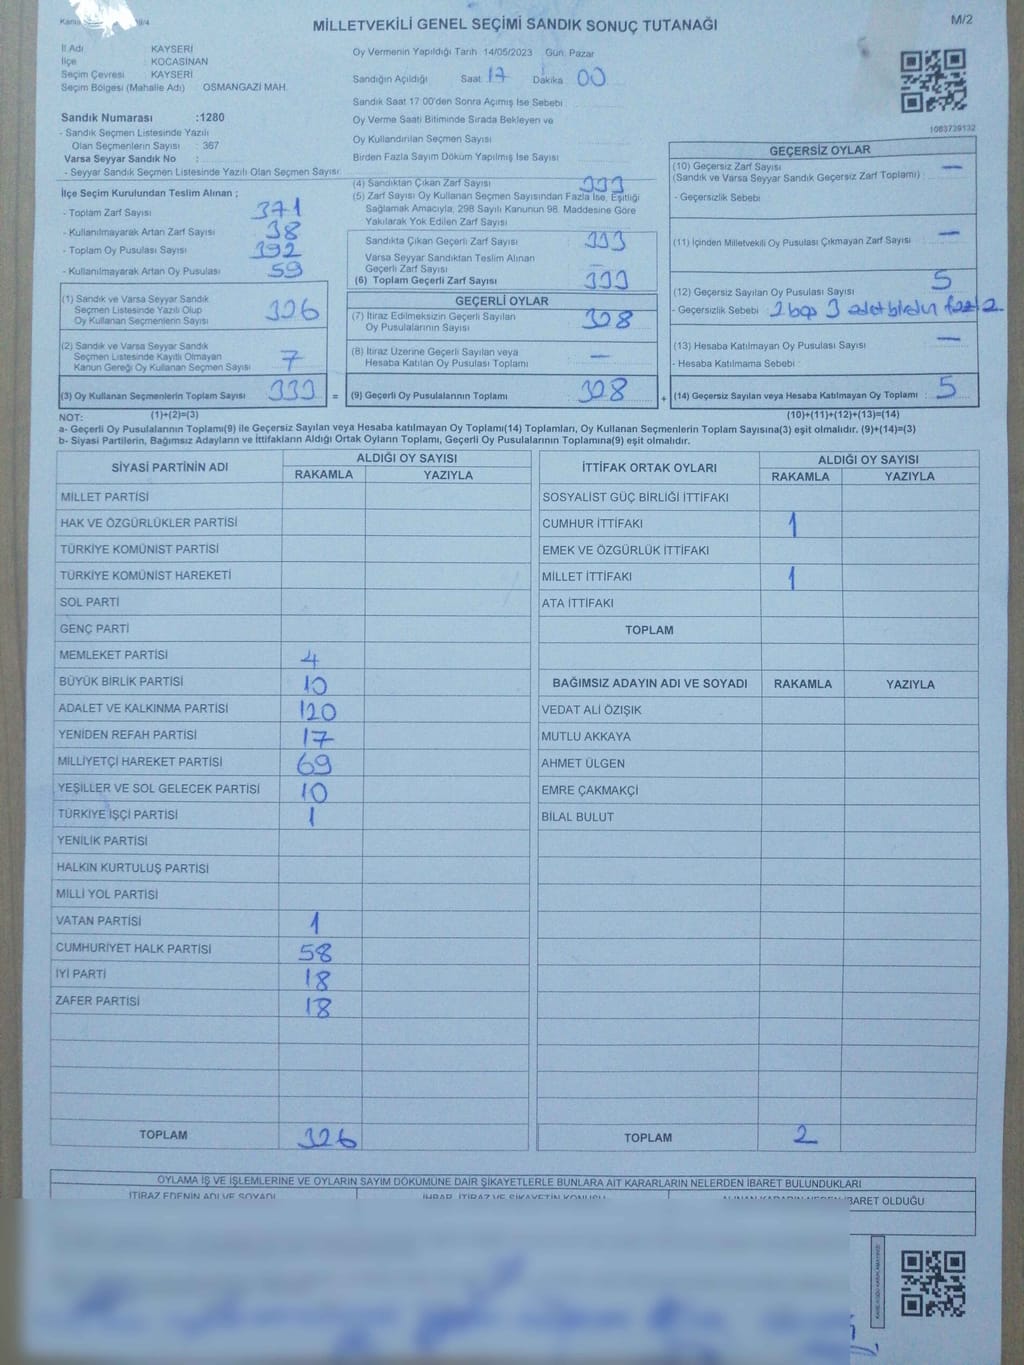 MİLLETVEKİLİ GENEL SEÇİMİ SANDIK SONUÇ TUTANAĞI
M/2
İl Adı KAYSERİ
İlçe KOCASİNAN
Seçim Çevresi KAYSERİ
Seçim Bölgesi (Mahalle Adı) OSMANGAZİ MAH.
Oy Vermenin Yapıldığı Tarih 14/05/2023 Gün: Pazar
Sandığın Açıldığı Saat 17 Dakika 00
Sandık Saat 17 00'den Sonra Açımış İse Sebebi
Oy Verme Saati Bitiminde Sırada Bekleyen ve
Oy Kullandırılan Seçmen Sayısı
Birden Fazla Sayım Döküm Yapılmış İse Sayısı
1063739132
Sandık Numarası :1280
- Sandık Seçmen Listesinde Yazılı
Olan Seçmenlerin Sayısı : 367
Varsa Seyyar Sandık No :
- Seyyar Sandık Seçmen Listesinde Yazılı Olan Seçmen Sayısı
İlçe Seçim Kurulundan Teslim Alınan ;
- Toplam Zarf Sayısı 371
- Kullanılmayarak Artan Zarf Sayısı 38
- Toplam Oy Pusulası Sayısı 392
- Kullanılmayarak Artan Oy Pusulası 59
(1) Sandık ve Varsa Seyyar Sandık
Seçmen Listesinde Yazılı Olup
Oy Kullanan Seçmenlerin Sayısı 326
(2) Sandık ve Varsa Seyyar Sandık
Seçmen Listesinde Kayıtlı Olmayan
Kanun Gereği Oy Kullanan Seçmen Sayısı 7
(3) Oy Kullanan Seçmenlerin Toplam Sayısı 333 =
(4) Sandıktan Çıkan Zarf Sayısı 333
(5) Zarf Sayısı Oy Kullanan Seçmen Sayısından Fazla İse, Eşitliği
Sağlamak Amacıyla, 298 Sayılı Kanunun 98. Maddesine Göre
Yakılarak Yok Edilen Zarf Sayısı
Sandıkta Çıkan Geçerli Zarf Sayısı 333
Varsa Seyyar Sandıktan Teslim Alınan
Geçerli Zarf Sayısı —
(6) Toplam Geçerli Zarf Sayısı 333
GEÇERLİ OYLAR
(7) İtiraz Edilmeksizin Geçerli Sayılan
Oy Pusulalarının Sayısı 328
(8) İtiraz Üzerine Geçerli Sayılan veya
Hesaba Katılan Oy Pusulası Toplamı —
(9) Geçerli Oy Pusulalarının Toplamı 328 +
GEÇERSİZ OYLAR
(10) Geçersiz Zarf Sayısı —
(Sandık ve Varsa Seyyar Sandık Geçersiz Zarf Toplamı) :
- Geçersizlik Sebebi
(11) İçinden Milletvekili Oy Pusulası Çıkmayan Zarf Sayısı —
(12) Geçersiz Sayılan Oy Pusulası Sayısı 5
- Geçersizlik Sebebi 2 boş 3 adet birden fazla
(13) Hesaba Katılmayan Oy Pusulası Sayısı —
- Hesaba Katılmama Sebebi
(14) Geçersiz Sayılan veya Hesaba Katılmayan Oy Toplamı : 5
NOT: (1)+(2)=(3)
(10)+(11)+(12)+(13)=(14)
a- Geçerli Oy Pusulaları Toplamı(9) ile Geçersiz Sayılan veya Hesaba katılmayan Oy Toplamı(14) Toplamları, Oy Kullanan Seçmenlerin Toplam Sayısına(3) eşit olmalıdır. (9)+(14)=(3)
b- Siyasi Partilerin, Bağımsız Adayların ve İttifakların Aldığı Ortak Oyların Toplamı, Geçerli Oy Pusulalarının Toplamına(9) eşit olmalıdır.
SİYASİ PARTİNİN ADI ALDIĞI OY SAYISI
RAKAMLA YAZIYLA
MİLLET PARTİSİ
HAK VE ÖZGÜRLÜKLER PARTİSİ
TÜRKİYE KOMÜNİST PARTİSİ
TÜRKİYE KOMÜNİST HAREKETİ
SOL PARTİ
GENÇ PARTİ
MEMLEKET PARTİSİ 4
BÜYÜK BİRLİK PARTİSİ 10
ADALET VE KALKINMA PARTİSİ 120
YENİDEN REFAH PARTİSİ 17
MİLLİYETÇİ HAREKET PARTİSİ 69
YEŞİLLER VE SOL GELECEK PARTİSİ 10
TÜRKİYE İŞÇİ PARTİSİ 1
YENİLİK PARTİSİ
HALKIN KURTULUŞ PARTİSİ
MİLLİ YOL PARTİSİ
VATAN PARTİSİ 1
CUMHURİYET HALK PARTİSİ 58
İYİ PARTİ 18
ZAFER PARTİSİ 18
TOPLAM 326
İTTİFAK ORTAK OYLARI ALDIĞI OY SAYISI
RAKAMLA YAZIYLA
SOSYALİST GÜÇ BİRLİĞİ İTTİFAKI
CUMHUR İTTİFAKI 1
EMEK VE ÖZGÜRLÜK İTTİFAKI
MİLLET İTTİFAKI 1
ATA İTTİFAKI
TOPLAM
BAĞIMSIZ ADAYIN ADI VE SOYADI RAKAMLA YAZIYLA
VEDAT ALİ ÖZIŞIK
MUTLU AKKAYA
AHMET ÜLGEN
EMRE ÇAKMAKÇİ
BİLAL BULUT
TOPLAM 2
OYLAMA İŞ VE İŞLEMLERİNE VE OYLARIN SAYIM DÖKÜMÜNE DAİR ŞİKAYETLERLE BUNLARA AİT KARARLARIN NELERDEN İBARET BULUNDUKLARI
İTİRAZ EDENİN ADI VE SOYADI İHBAR, İTİRAZ VE ŞİKAYETİN KONUSU ALINAN KARARIN NEDEN İBARET OLDUĞU